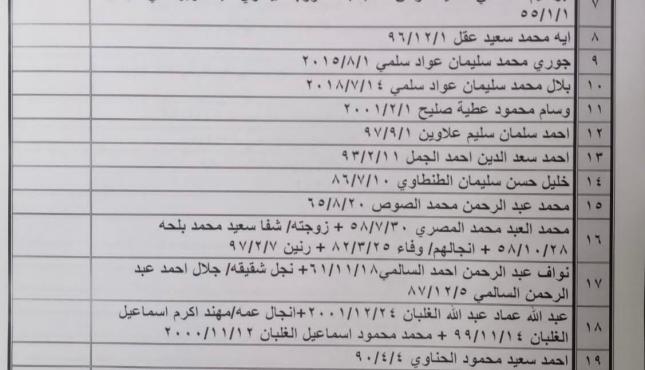 ٧
٥٥/١/١
٨ ايه محمد سعيد عقل ٩٦/١٢/١
٩ جوري محمد سليمان عواد سلمي ٢٠١٥/٨/١
١٠ بلال محمد سليمان عواد سلمي ٢٠١٨/٧/١٤
١١ وسام محمود عطية صليح ٢٠٠١/٢/١
١٢ احمد سلمان سليم علاوين ٩٧/٩/١
١٣ احمد سعد الدين احمد الجمل ٩٣/٢/١١
١٤ خليل حسن سليمان الطنطاوي ٨٦/٧/١٠
١٥ محمد عبد الرحمن محمد الصوص ٦٥/٨/٢٠
١٦ محمد العبد محمد المصري ٥٨/٧/٣٠ + زوجته/ شفا سعيد محمد بلحه
٥٨/١٠/٢٨ + انجالهم/ وفاء ٨٢/٣/٢٥ + رنين ٩٧/٢/٧
١٧ نواف عبد الرحمن احمد السالمي٦١/١١/١٨+ نجل شقيقه/ جلال احمد عبد
الرحمن السالمي ٨٧/١٢/٥
١٨ عبد الله عماد عبد الله الغلبان ٢٠٠١/١٢/٢٤+انجال عمه/مهند اكرم اسماعيل
الغلبان ٩٩/١١/١٤ + محمد محمود اسماعيل الغلبان ٢٠٠٠/١١/١٢
١٩ احمد سعيد محمود الحناوي ٩٠/٤/٤